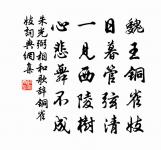 魏王銅雀妓
日暮管弦清
一見西陵樹
悲心舞不成
朱光弼相和歌辭銅雀
妓詞典網集